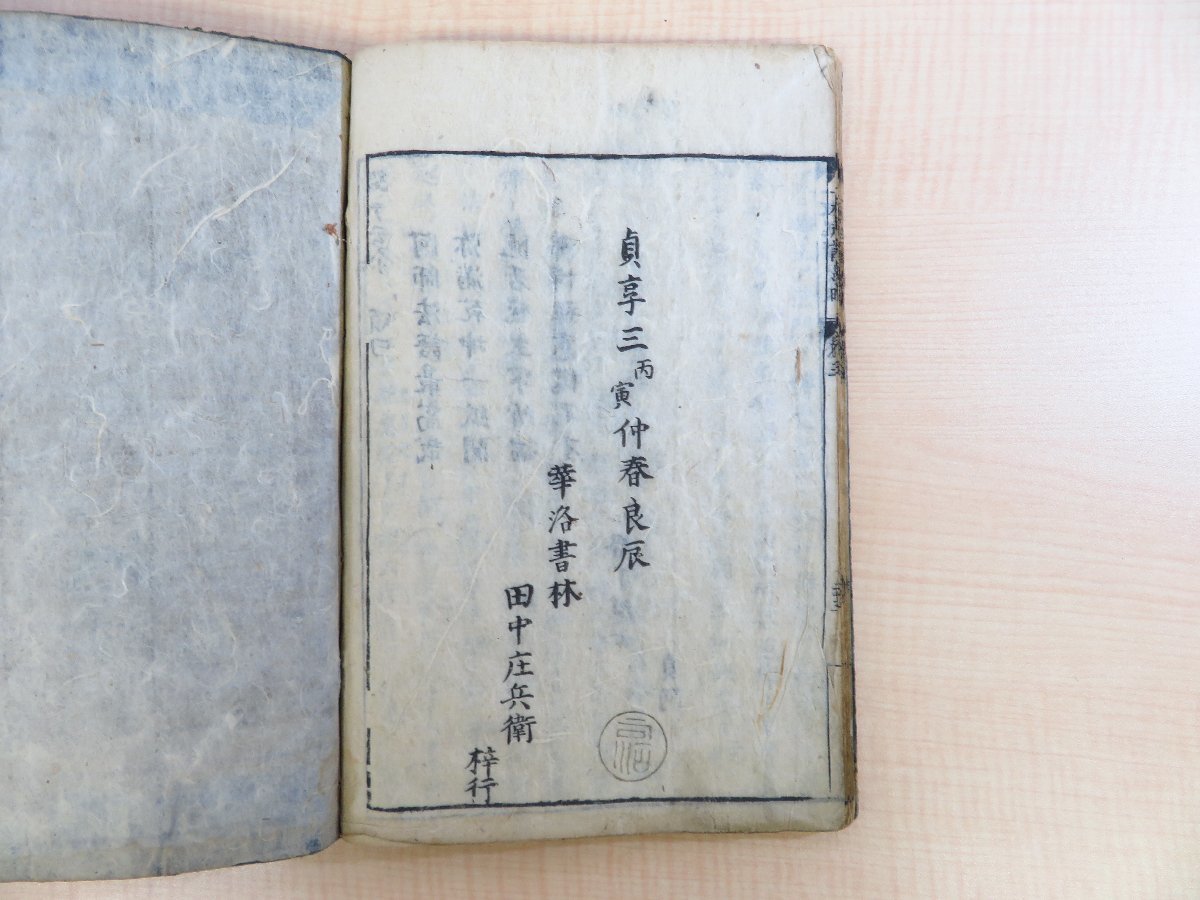 貞享三丙寅仲春良辰
華洛書林
田中庄兵衛
梓行